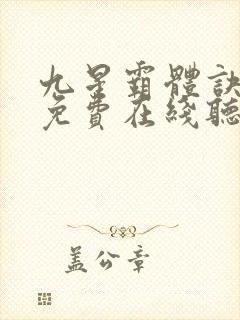 九星霸體訣
免費在綫聽
蓋公章